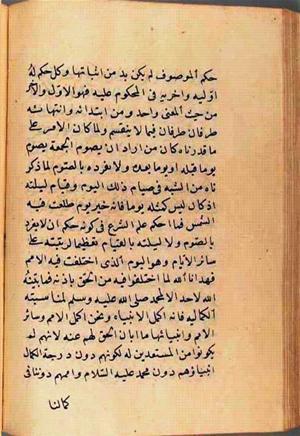 حكم الموصوف لم يكن بد من اثباتها وكل حكم له
اوّليه واخريه في المحكوم عليه فهو الاوّل والاخر
من حيث المعنى واحد ومن ابتدائه وانتهائه
طرفان طرفان فيما لا ينقسم ولما كان الامر على
ما قدرناه كان من اراد ان يصوم الجمعة يصوم
يوما قبله او يوما بعده ولا يفرده بالصوم لما ذكر
ناه من الشبه في صيام ذلك اليوم وقيام ليلته
اذ كان ليس كمثله يوم فانه خير يوم طلعت فيه
الشمس فما احكم علم الشرع في كونه حكم ان لا يفرد
بالصوم ولا ليلته بالقيام تعظيما لرتبته على
سائر الايام وهو اليوم الذى اختلفت فيه الامم
فهدانا الله لما اختلفوا فيه من الحق باذنه فما بيّنه
الله لاحد الا لمحمد صلى الله عليه وسلم لمناسبته
الكماليه فانه اكمل الانبياء ونحن اكمل الامم وسائر
الامم وانبيائها ما ابان الحق لهم عنه لانهم لم
يكونوا من المستعدين له لكونهم دون درجة الكمال
انبياؤهم دون محمد عليه السّلام واممهم دوننا في
كمالنا